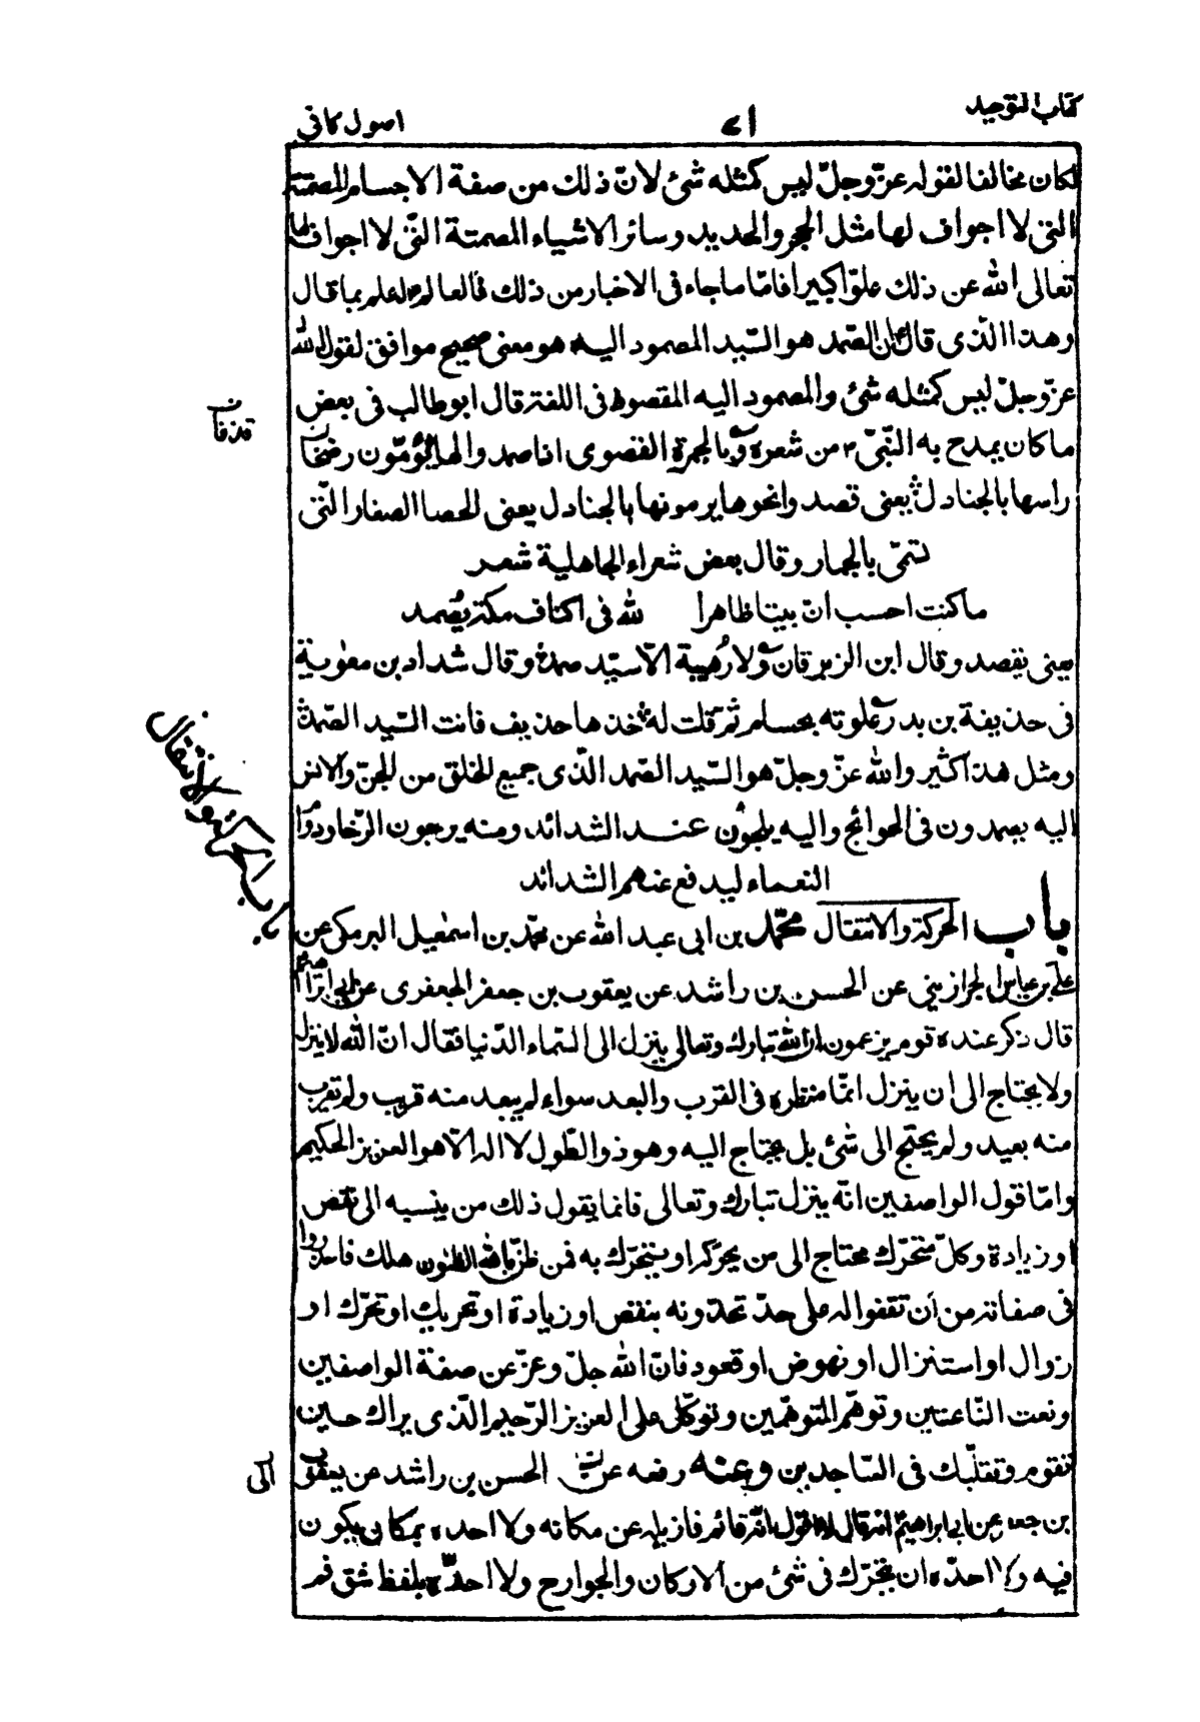 كتاب التوحيد
ا۷
اصول كافى
لكان مخالفا لقوله عزّ وجلّ ليس كمثله شئ لانّ ذلك من صفة الاجسام المصمتة
التى لا اجواف لها مثل الحجر والحديد وسائر الاشياء المصمتة التى لا اجواف لها
تعالى الله عن ذلك علوّا كبيرا فامّا ما جاء فى الاخبار من ذلك فالعالم ع اعلم بما قال
وهذا الذى قال ع ان الصّمد هو السّيد المصمود اليه هو معنى صحيح موافق لقول الله
عزّ وجلّ ليس كمثله شئ والمصمود اليه المقصود فى اللغة قال ابو طالب فى بعض
ما كان يمدح به النّبىّ ص من شعره و بالجمرة القصوى اذا صمدوا لها يؤمّون رضخا
راسها بالجنادل يعنى قصدوا نحوها يرمونها بالجنادل يعنى الحصا الصغار التى
تسمّى بالجمار وقال بعض شعراء الجاهلية شعر
ما كنت احسب انّ بيتا ظاهرا لله فى اكناف مكة يُصمد
يعنى يقصد وقال ابن الزبرقان ولا رُهيبة الّا سيّد صمد وقال شداد بن معوية
فى حذيفة بن بدر علوته بحسام ثمّ قلت له خذها حذيف فانت السّيد الصّمد
ومثل هذا كثير والله عزّ وجلّ هو السّيد الصّمد الّذى جميع الخلق من الجنّ والانس
اليه يصمدون فى الحوائج واليه يلجؤن عند الشدائد ومنه يرجون الرّخا ودوام
النعماء ليدفع عنهم الشدائد
باب الحركة والانتقال محمّد بن ابى عبد الله عن محمّد بن اسمعيل البرمكى عن
علىّ بن عباس الجراذينى عن الحسن بن راشد عن يعقوب بن جعفر الجعفرى عن ابى ابراهيم
قال ذكر عنده قوم يزعمون ان الله تبارك وتعالى ينزل الى السّماء الدّنيا فقال انّ الله لا ينزل
ولا يحتاج الى ان ينزل انمّا منظره فى القرب والبعد سواء لم يبعد منه قريب ولم يقرب
منه بعيد ولم يحتج الى شئ بل يحتاج اليه وهو ذو الطّول لا اله الّا هو العزيز الحكيم
وامّا قول الواصفين انّه ينزل تبارك وتعالى فانما يقول ذلك من ينسبه الى نقص
او زيادة وكلّ متحرّك محتاج الى من يحرّكه او يتحرّك به فمن ظنّ بالله الظنون هلك فاحذروا
فى صفاته من ان تقفوا له على حدّ تحدّونه بنقص او زيادة او تحريك او تحرّك او
زوال او استنزال او نهوض او قعود فانّ الله جلّ وعزّ عن صفة الواصفين
ونعت النّاعتين وتوهّم المتوهّمين وتوكّل على العزيز الرّحيم الّذى يراك حين
تقوم وتقلّبك فى السّاجدين وعنه رفعه عن الحسن بن راشد عن يعقوب
بن جعفر عن ابى ابراهيم انه قال لا اقول انّه قائم فازيله عن مكانه ولا احده بمكان يكون
فيه ولا احدّه ان يتحرّك فى شئ من الاركان والجوارح ولا احدّه بلفظ شق فم
باب الحركة والانتقال